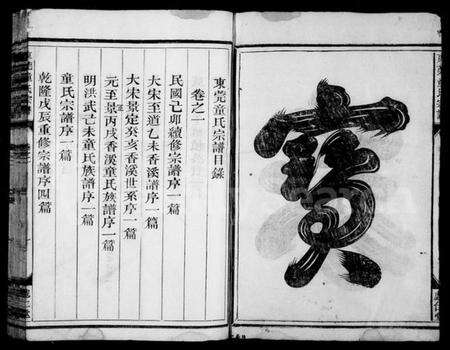 寶
東莞童氏宗譜目錄
卷之一
民國己卯續修宗譜序一篇
大宋至道乙未香溪譜序一篇
大宋景定癸亥香溪世系序一篇
元至正丙戌香溪童氏族譜序一篇
明洪武己未童氏族譜序一篇
童氏宗譜序一篇
乾隆戊辰重修宗譜序四篇